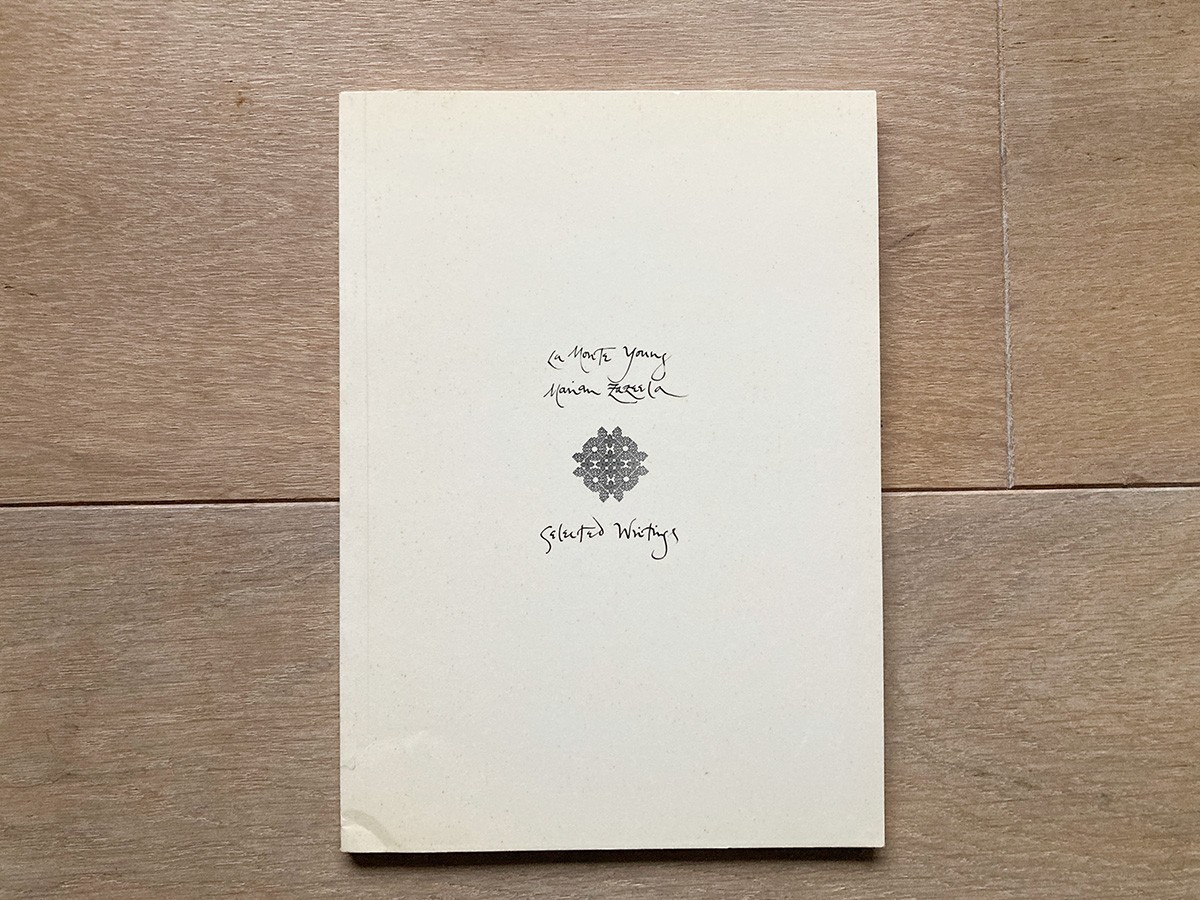 La Monte Young
Marian Zazeela
Selected Writings